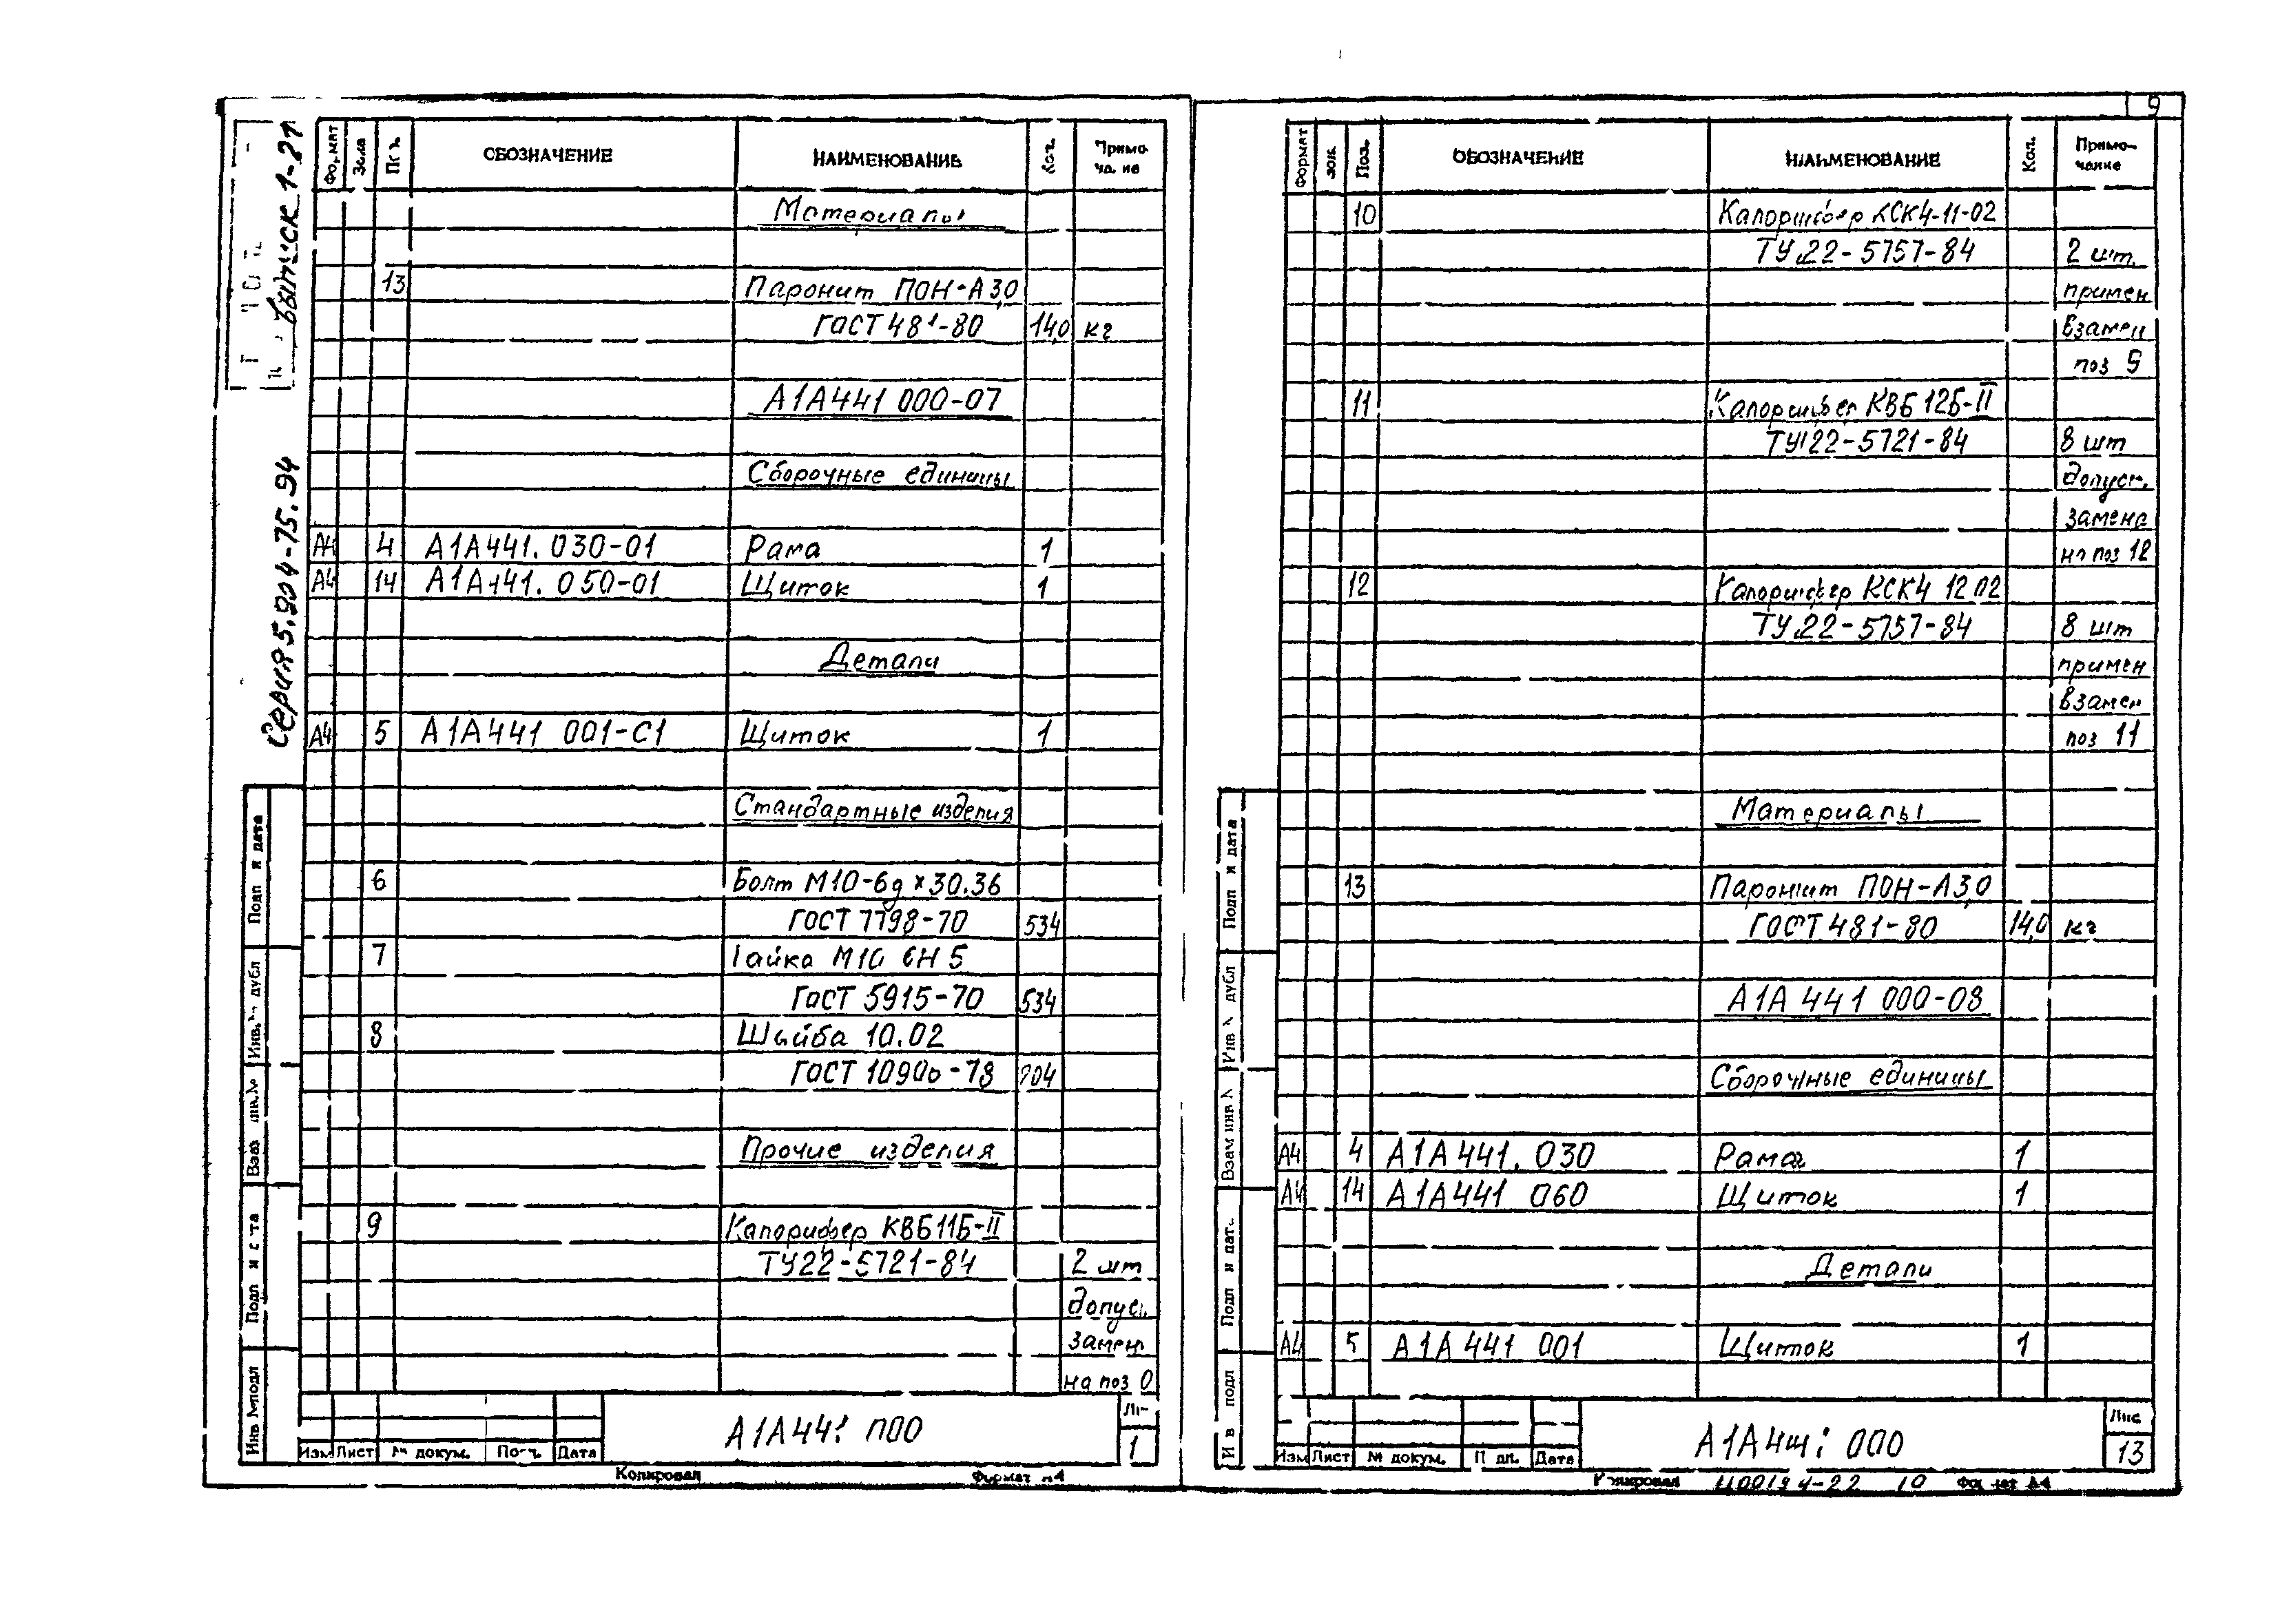 выпуск 1-21
Серия 5.904-75.94
Формат Зона Поз. ОБОЗНАЧЕНИЕ НАИМЕНОВАНИЕ Кол. Приме-
Материалы
13 Паронит ПОН-А3,0
ГОСТ 481-80 14,0 кг
А1А441 000-07
Сборочные единицы
А4 4 А1А441. 030-01 Рама 1
А4 14 А1А441. 050-01 Щиток 1
Детали
А4 5 А1А441 001-С1 Щиток 1
Стандартные изделия
6 Болт М10-6g×30.36
ГОСТ 7798-70 534
7 Гайка М10 6Н 5
ГОСТ 5915-70 534
8 Шайба 10.02
ГОСТ 10906-78
Прочие изделия
9 Калорифер КВБ11Б-II
ТУ22-5721-84 2 шт
допуск.
замен.
на поз 0
Подп и дата
Инв.№ дубл
Взаз инв.№
Подп и дата
Инв №подл
Изм Лист № докум. Подп. Дата
А1А441 000
1
Копировал Формат А4
9
Формат Зон. Поз. ОБОЗНАЧЕНИЕ НАИМЕНОВАНИЕ Кол. Приме-
чание
10 Калорифер КСК4-11-02
ТУ.22-5757-84 2 шт.
примен
взамен
поз 9
11 Калорифер КВБ 12Б-II
ТУ22-5721-84 8 шт
допуск.
замена
на поз 12
12 Калорифер КСК4 12 02
ТУ.22-5757-84 8 шт
примен
взамен
поз 11
Материалы
13 Паронит ПОН-А3,0
ГОСТ 481-80 14,0 кг
А1А 441 000-08
Сборочные единицы
А4 4 А1А 441. 030 Рама 1
А4 14 А1А441 060 Щиток 1
Детали
А4 5 А1А 441 001 Щиток 1
Подп и дата
Инв № дубл
Взам инв №
Подп и дат.
Изм Лист № докум. Подп. Дата
А1А441 000
Лис
13
Копировал Ц00194-22 10 Формат А4